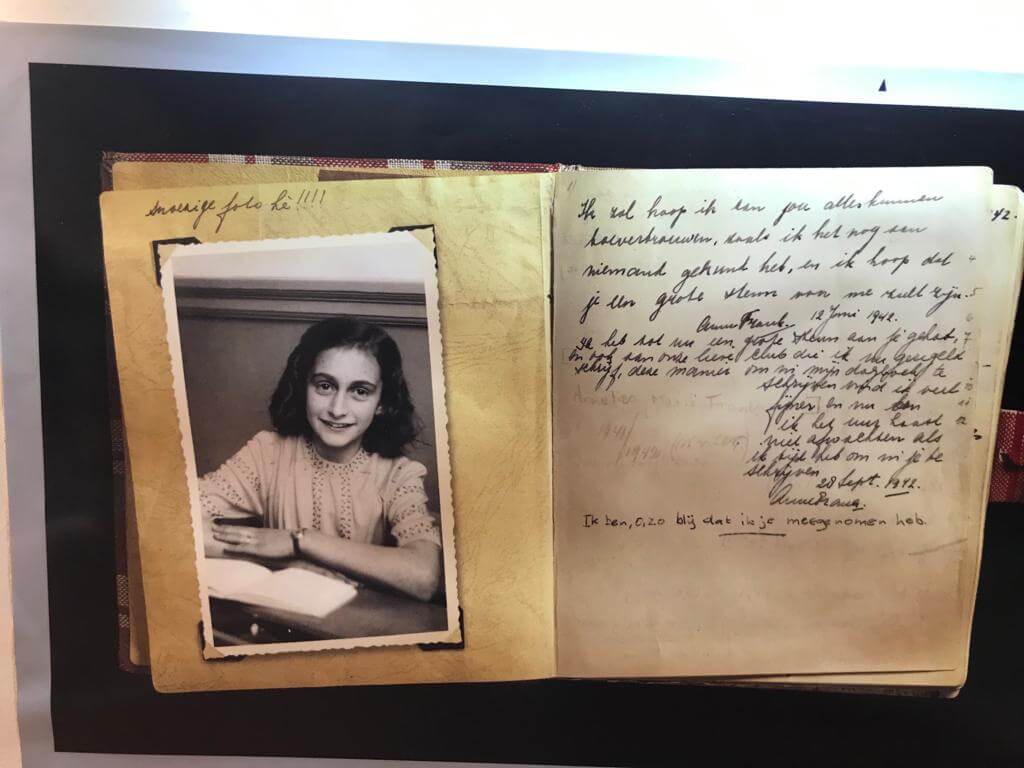 snoezige foto hè!!!!
11
Ik zal hoop ik aan jou alles kunnen
toevertrouwen, zoals ik het nog aan
niemand gekund heb, en ik hoop dat
je een grote steun van me zult zijn.
Anne Frank. 12 Juni 1942.
Ik heb tot nu een grote steun aan je gehad,
en ook aan onze lieve club die ik nu geregeld
schrijf, deze manier om in mijn dagboek te
schrijven vind ik veel
fijner en nu kan
ik het uur haast
niet afwachten als
ik tijd heb om in je te
schrijven
28 Sept. 1942.
Anne Frank.
Ik ben, O, zo blij dat ik je meegenomen heb.
Annelies Marie Frank
1941/
1942
42.
4
5
6
7